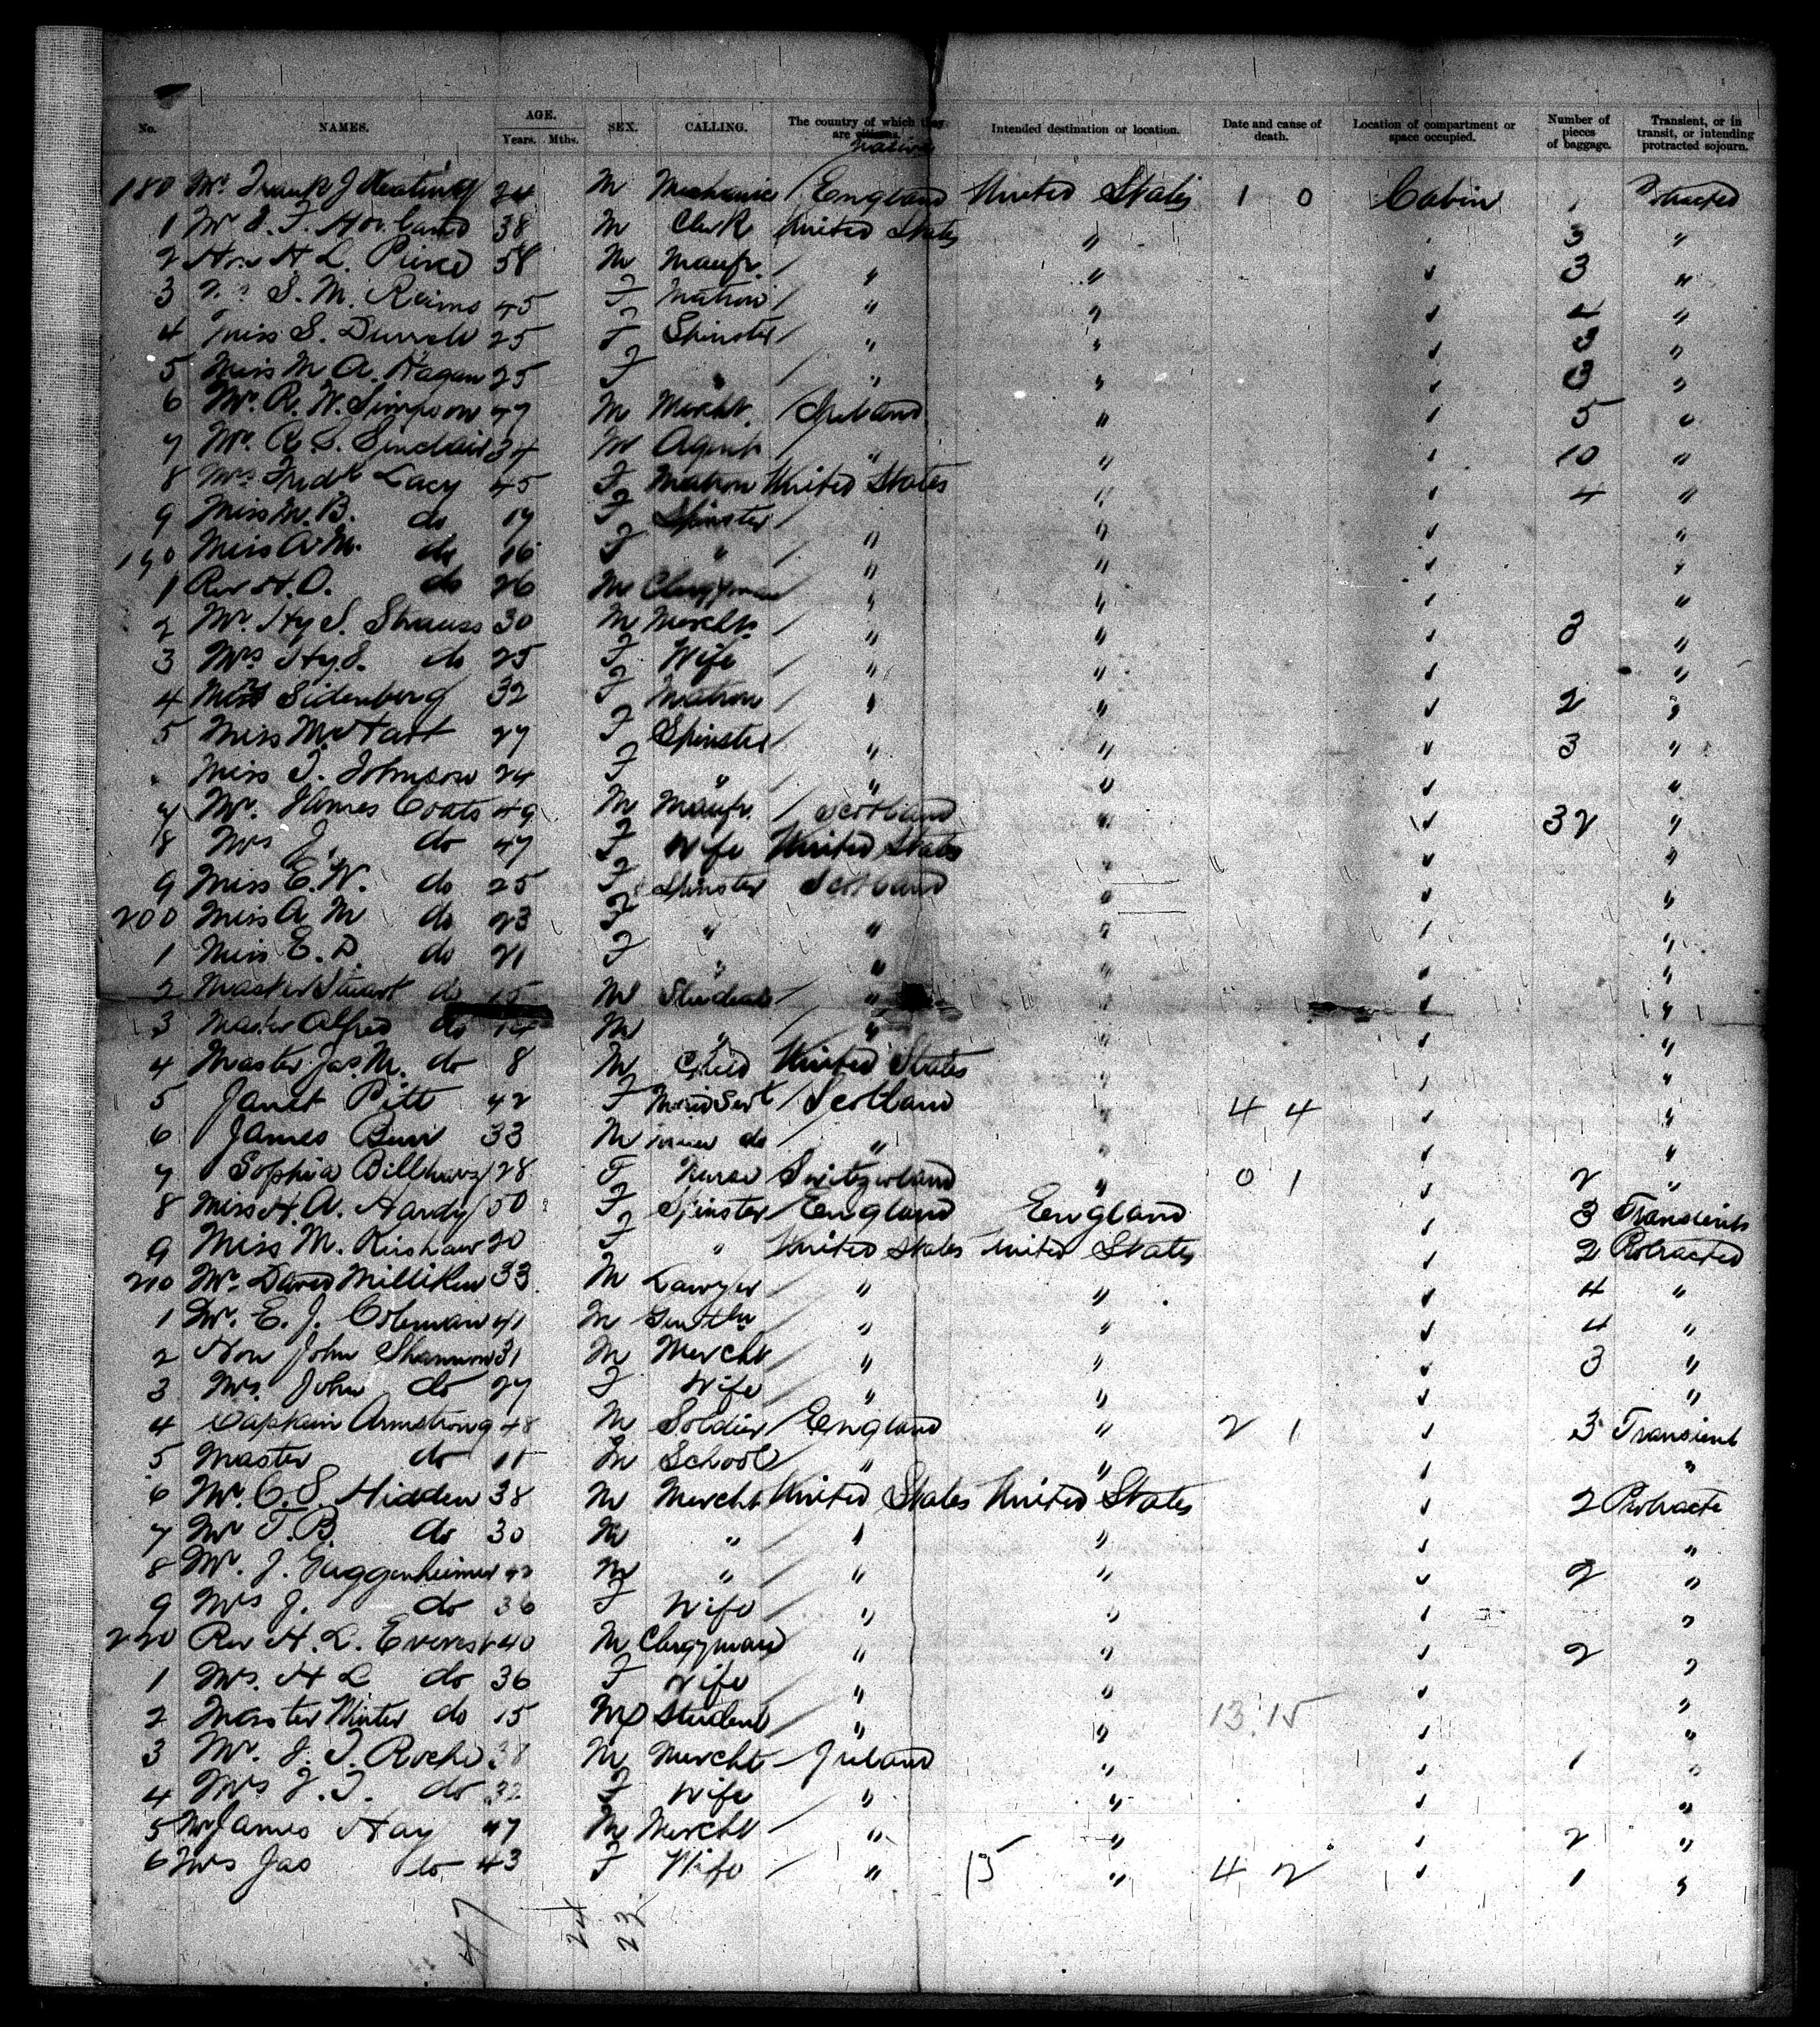 No. NAMES. AGE. Years. Mths. SEX. CALLING. The country of which they are citizens. native Intended destination or location. Date and cause of death. Location of compartment or space occupied. Number of pieces of baggage. Transient, or in transit, or intending protracted sojourn.
180 Mr Frank J Keating 24 M Mechanic / England United States 1 0 Cabin 1 Protracted
1 Mr 38 M Clerk United States " 3 "
2 Hon H L. Pierce 58 M Manfr. / " " 3 "
3 S. M. 45 F Matron / " " 4 "
4 Miss S. Durrell 25 F Spinster / " " 3 "
5 Miss M A. Hagan 25 F " " " 3 "
6 Mr. R. W. Simpson 47 M Mercht. / Ireland " 5 "
7 Mr. R. S. Sinclair 34 M Agent " " 10 "
8 Mrs Fredk Lacy 45 F Matron United States " 4 "
9 Miss M. B. do 19 F Spinster / " " "
190 Miss A. M. do 16 F " / " " "
1 Rev H. O. do 26 M Clergyman " " "
2 Mr. Hy S. Strauss 30 M Mercht. / " " 3 "
3 Mrs Hy S. do 25 F Wife / " " "
4 Mrs Sidenberg 32 F Matron / " " 2 "
5 Miss M. Hart 27 F Spinster / " " 3 "
Miss J. Johnson 24 F " / " " "
7 Mr. James Coats 49 M Manfr. / Scotland " 32 "
8 Mrs J. do 47 F Wife United States " "
9 Miss E. W. do 25 F Spinster Scotland " "
200 Miss A M do 23 F " " " "
1 Miss E. D. do 21 F " " " "
2 Master Stuart do 15 M Student / " " "
3 Master Alfred do 14 M " / " " "
4 Master Jas. M. do 8 M Child United States " "
5 Janet Pitt 42 F Maid Servt / Scotland " 4 4 "
6 James 33 M do / " " "
7 Sophia Billharz 28 F Nurse Switzerland " 0 1 2 "
8 Miss H. A. Hardy 50 F Spinster / England England 3 Transient
9 Miss M. Kershaw 20 F " United States United States 2 Protracted
210 Mr. David Milliken 33 M Lawyer / " " 4 "
1 Mr. E. J. Coleman 41 M Gentln / " " 4 "
2 Hon John Shannon 31 M Mercht / " " 3 "
3 Mrs. John do 27 F Wife / " " "
4 Captain Armstrong 48 M Soldier / England " 2 1 3 Transient
5 Master do 11 M School / " " "
6 Mr. C. S. Hidden 38 M Mercht United States United States 2 Protracte
7 Mr T. B. do 30 M " / " " "
8 Mr. J. Guggenheimer 42 M " / " " 2 "
9 Mrs J. do 36 F Wife / " " "
220 Rev H. L. Everest 40 M Clergyman / " " 2 "
1 Mrs. H L do 36 F Wife / " " "
2 Master Winter do 15 M Student / " " 13.15 "
3 Mr. J. J. Roche 38 M Mercht - Ireland " 1 "
4 Mrs J. J. do 32 F Wife " " "
5 Mr James Hay 47 M Mercht / " " 2 "
6 Mrs Jas do 43 F Wife / " 15 " 4 2 1 "
47 24 23